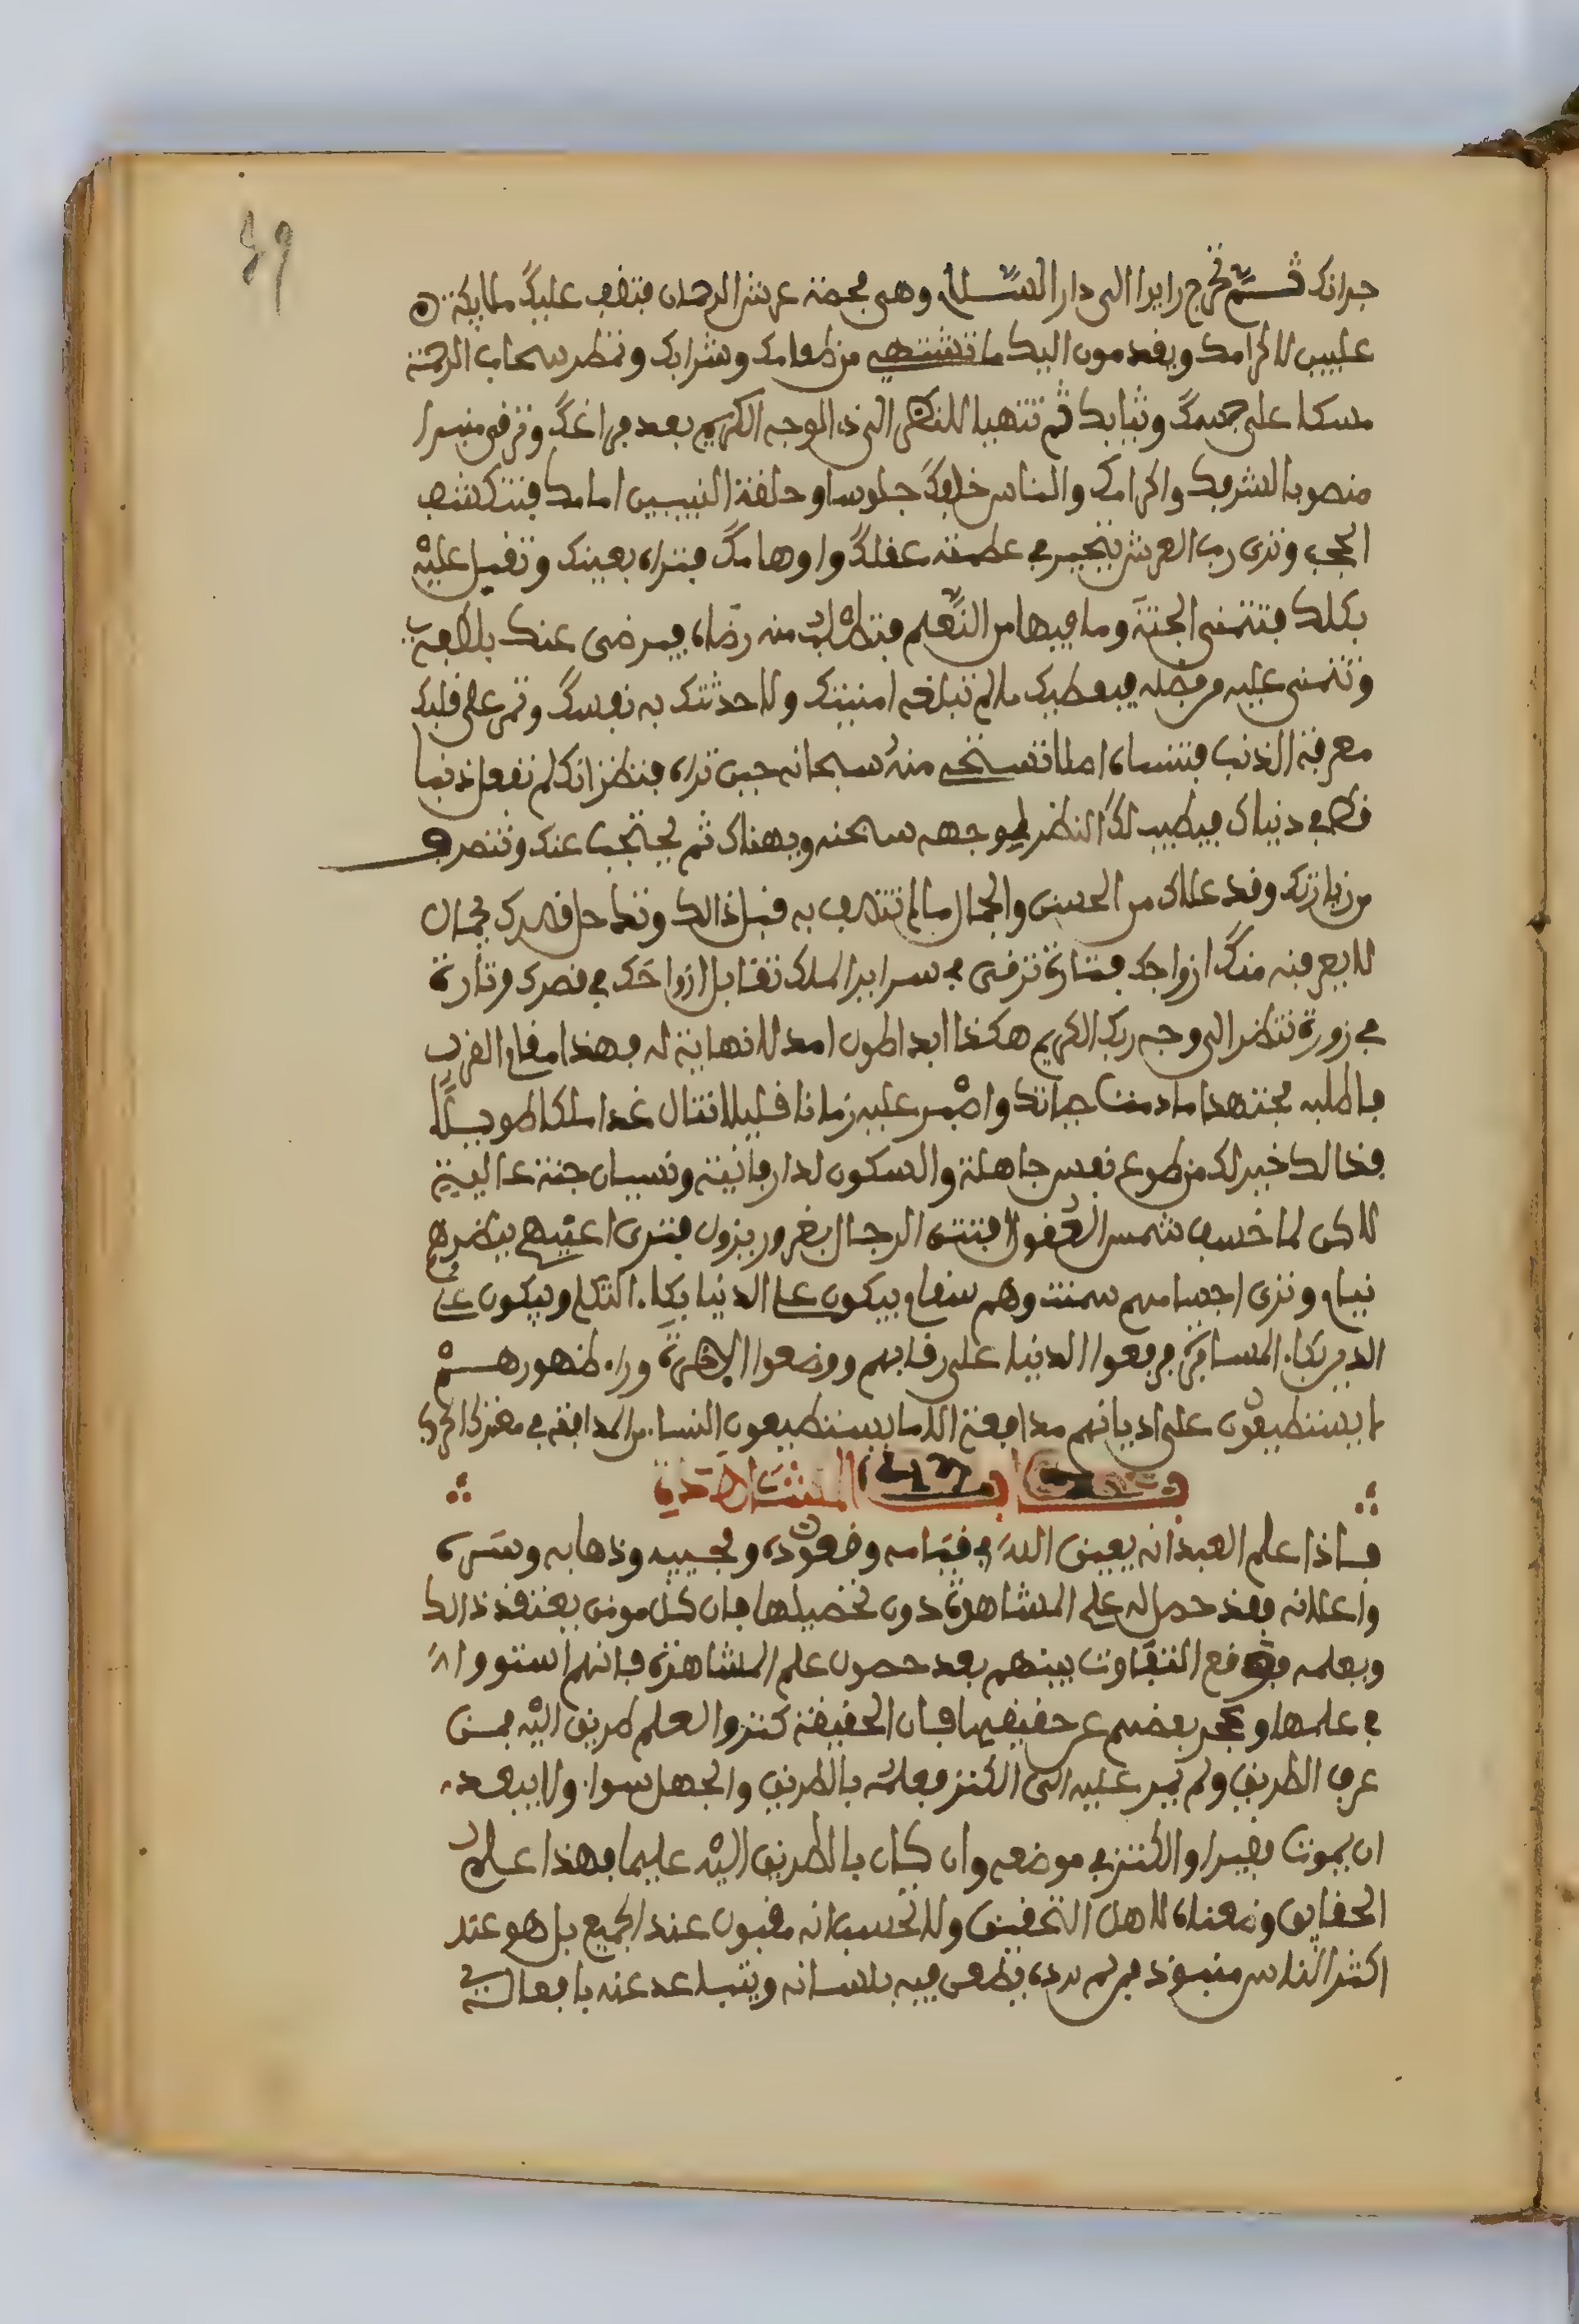 جيرانك ثم تخرج زايرا الى دار السلام وهى محضة عرش الرحمان فتقف عليك ملايكة
عليين لاكرامك ويقدمون اليك ما تشتهى من طعامك وشرابك وتمطر سحاب الرحمة
مسكا على جسمك وثيابك ثم تتهيا للنظر الى ذلك الوجه الكريم بعد فراغك وترقى منبرا
منصوبا لشرفك واكرامك والناس خلفك جلوسا وحلقة النبيين امامك فتنكشف
الحجب وترى رب العرش يتحير في عظمته عقلك واوهامك فتراه بعينك وتقبل عليه
بكلك فتنسى الجنة وما فيها من النعيم فتطلب منه رضاه فيرضى عنك بلا عتب
وتتمنى عليه من فضله فيعطيك ما لم تبلغه امنيتك ولا حدثتك به نفسك وتمر على قلبك
معرفة الذنب فتنساه لما تستحى منه سبحانه حين تراه فتظن انك لم تفعل ذنبا
قط في دنياك فيطيب لك النظر في وجهه سبحنه ويهناك ثم يحتجب عنك وتنصرف
من زيارتك وقد علاك من الحسن والجمال ما لم تتصف به قبل ذالك وتدخل قصرك بجمال
لا يعرفنه منك ازواجك فتارة ترقى في سراير الملك تقابل ازواجك في قصرك وتارة
في زورة تنظر الى وجه ربك الكريم هكذا ابدا طول امد لا نهاية له فهذا مقام القرب
فاطلبه مجتهدا ما دمت حياتك واصبر عليه زمانا قليلا تنال غدا ملكا طويلا
فذالك خير لك من طوع نفس جاهلة والسكون لدار فانية ونسيان جنة عالية
لاكن لما خسف شمس العقول افتتن الرجال بغرور يزول فترى اعينهم بنظرهم
نيام وترى اجسامهم سمنت وهم سقام يبكون على الدنيا بكاء الثكلى ويبكون على
الدين بكاء المسافر فرفعوا الدنيا على رقابهم ووضعوا الاخرة وراء ظهورهم
لا يستطيعون على اديانهم مدافعة الا ما يستطيعون النساء من المدافعة في معترك الحرب
المشاهدة
فاذا علم العبد انه بعين الله في قيامه وقعوده ومجييه وذهابه وسره
واعلانه فقد حصل له علم المشاهدة دون تحصيلها فان كل مومن يعتقد ذالك
ويعلمه فوقع التفاوت بينهم بعد حصول علم المشاهدة فانهم استووا
في علمها وعجز بعضهم عن حقيقتها فان الحقيقة كنز والعلم طريق اليه فمن
عرف الطريق ولم يمر عليه الى الكنز فعلمه بالطريق والجهل سواء ولا يبعد
ان يموت فقيرا والكنز في موضعه وان كان بالطريق اليه عليما فهذا علم
الحقايق ومعناه لاهل التحقيق ولا تحسب انه مقبول عند الجميع بل هو عند
اكثر الناس منبوذ فمن لم يرده يطعن فيه بلسانه ويتباعد عنه بافعاله